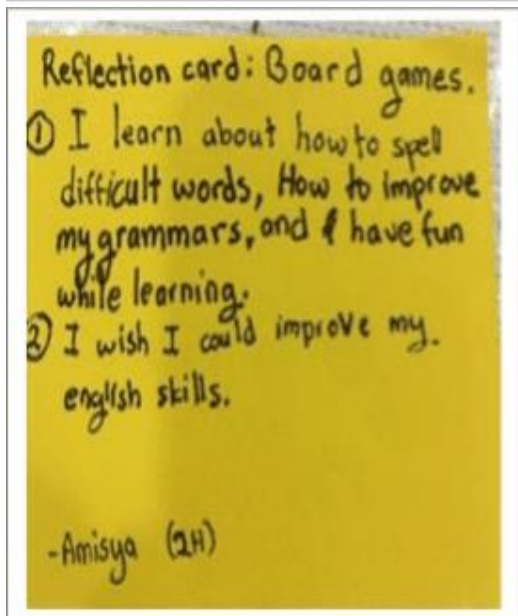 Reflection card: Board games.
① I learn about how to spell
difficult words, How to improve
my grammars, and have fun
while learning.
② I wish I could improve my.
english skills.
-Amisya (2H)